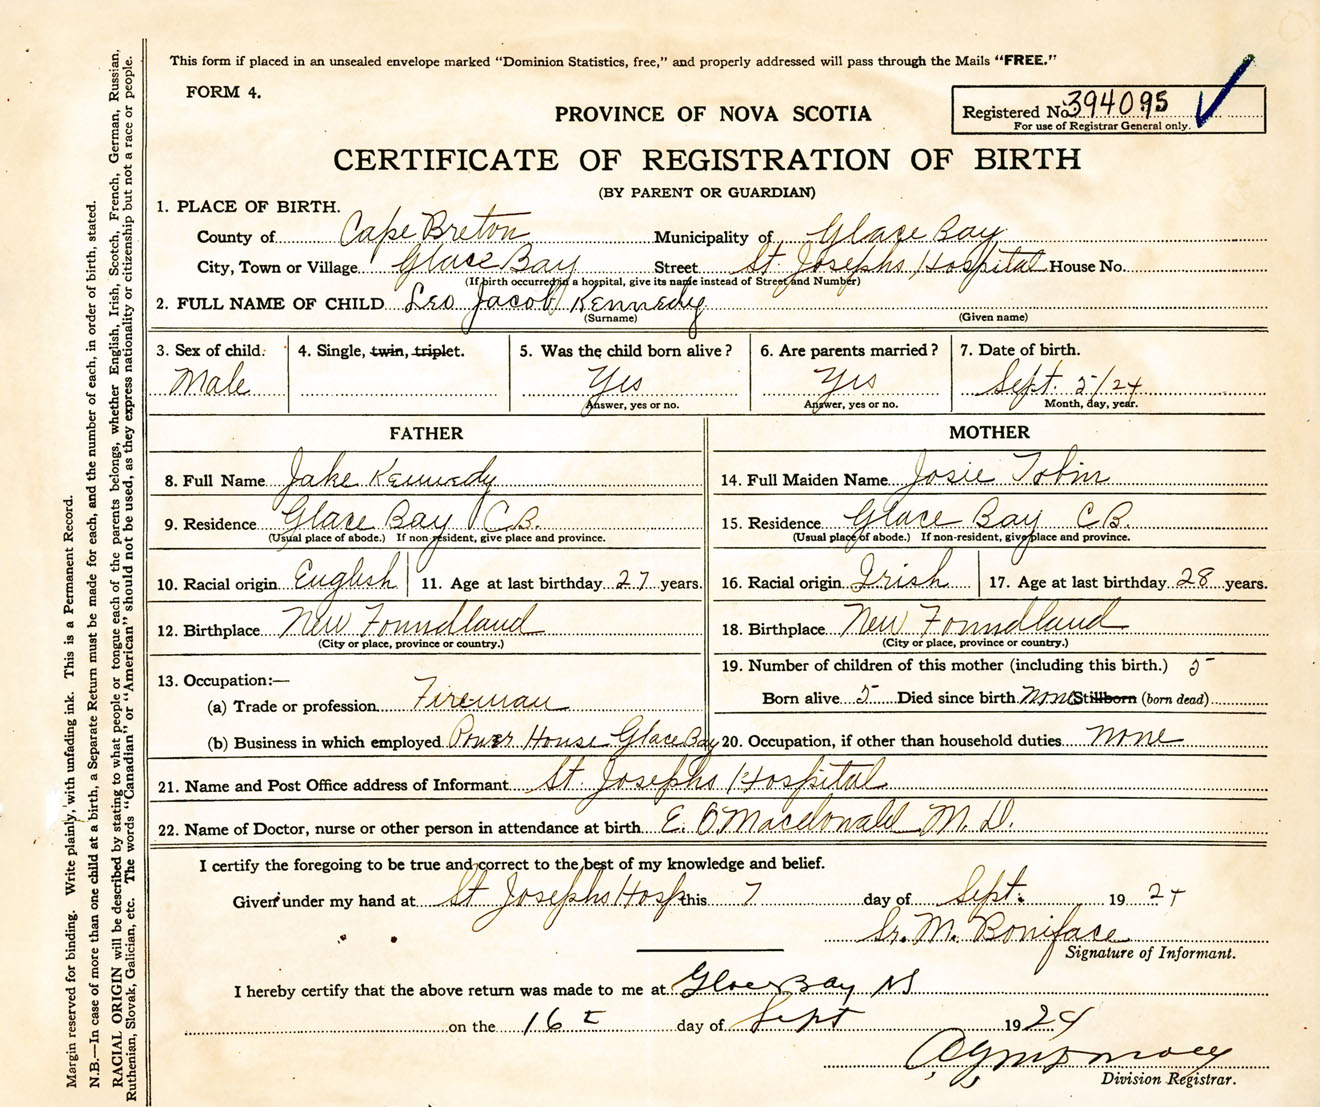 This form if placed in an unsealed envelope marked "Dominion Statistics, free," and properly addressed will pass through the Mails "FREE."
FORM 4.
Registered No. 394095
For use of Registrar General only.
PROVINCE OF NOVA SCOTIA
CERTIFICATE OF REGISTRATION OF BIRTH
(BY PARENT OR GUARDIAN)
1. PLACE OF BIRTH.
County of Cape Breton Municipality of Glace Bay
City, Town or Village Glace Bay Street St. Josephs Hospital House No.
(If birth occurred in a hospital, give its name instead of Street and Number)
2. FULL NAME OF CHILD Leo Jacob Kennedy
(Surname) (Given name)
3. Sex of child. 4. Single, twin, triplet. 5. Was the child born alive? 6. Are parents married? 7. Date of birth.
Male Yes Yes Sept. 5/24
Answer, yes or no. Answer, yes or no. Month, day, year.
FATHER MOTHER
8. Full Name Jake Kennedy 14. Full Maiden Name Josie Tobin
9. Residence Glace Bay C.B. 15. Residence Glace Bay C.B.
(Usual place of abode.) If non-resident, give place and province. (Usual place of abode.) If non-resident, give place and province.
10. Racial origin English 11. Age at last birthday 27 years. 16. Racial origin Irish 17. Age at last birthday 28 years.
12. Birthplace New Foundland 18. Birthplace New Foundland
(City or place, province or country.) (City or place, province or country.)
13. Occupation:— 19. Number of children of this mother (including this birth.) 5
(a) Trade or profession Fireman Born alive 5 Died since birth None Stillborn (born dead)
(b) Business in which employed Power House Glace Bay 20. Occupation, if other than household duties None
21. Name and Post Office address of Informant St. Josephs Hospital
22. Name of Doctor, nurse or other person in attendance at birth E. O. Macdonald M.D.
I certify the foregoing to be true and correct to the best of my knowledge and belief.
Given under my hand at St Josephs Hosp this 7 day of Sept. 1924
Sr. M. Boniface
Signature of Informant.
I hereby certify that the above return was made to me at Glace Bay NS
on the 16 day of Sept 1924
Division Registrar.
Margin reserved for binding. Write plainly, with unfading ink. This is a Permanent Record.
N.B.—In case of more than one child at a birth, a Separate Return must be made for each, and the number of each, in order of birth, stated.
RACIAL ORIGIN will be described by stating to what people or tongue each of the parents belongs, whether English, Irish, Scotch, French, German, Russian,
Ruthenian, Slovak, Galician, etc. The words "Canadian" or "American" should not be used, as they express nationality or citizenship but not a race or people.